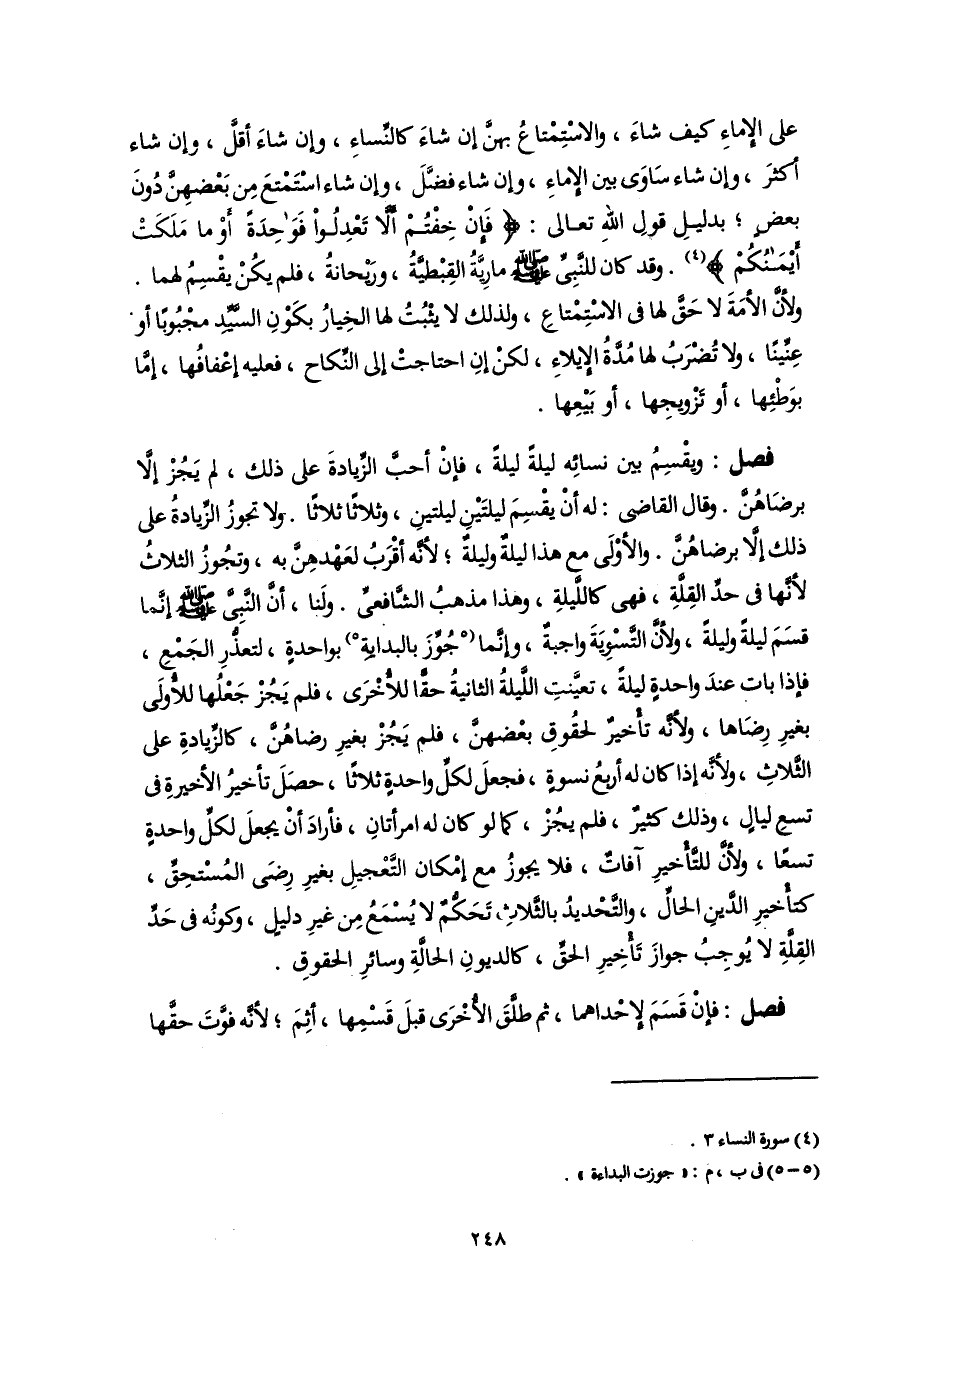 على الإماءِ كيف شاءَ ، والاسْتِمْتاعُ بهنَّ إن شاءَ كالنِّساءِ ، وإن شاءَ أقلَّ ، وإن شاء
أكثرَ ، وإن شاء سَاوَى بين الإماءِ ، وإن شاء فضَّلَ ، وإن شاء اسْتَمْتعَ مِن بَعْضهِنَّ دُونَ
بعضٍ ؛ بدليلِ قولِ اللهِ تعالى : ﴿ فَإِنْ خِفْتُمْ أَلَّا تَعْدِلُواْ فَوَٰحِدَةً أَوْ ما مَلَكَتْ
أَيْمَـٰنُكُمْ ﴾(٤) . وقد كان للنَّبِىِّ ﷺ مارِيَّةُ القِبْطيَّةُ ، ورَيْحانةُ ، فلم يكُنْ يقْسِمُ لهما .
ولأنَّ الأمَةَ لا حَقَّ لها فى الاسْتِمْتاعِ ، ولذلك لا يثْبُتُ لها الخِيارُ بكَوْنِ السَّيِّدِ مجْبُوبًا أو
عِنِّينًا ، ولا تُضْرَبُ لها مُدَّةُ الإيلاءِ ، لكنْ إنِ احتاجتْ إلى النِّكاح ، فعليه إعْفافُها ، إمَّا
بوَطْئِها ، أو تَزْويجِها ، أو بَيْعِها .
فصل : ويقْسِمُ بين نسائِه ليلةً ليلةً ، فإنْ أحبَّ الزِّيادةَ على ذلك ، لم يَجُزْ إلَّا
برضَاهُنَّ . وقال القاضى : له أنْ يقْسِمَ ليلتَيْنِ ليلتينِ ، وثلاثًا ثلاثًا . ولا تجوزُ الزِّيادةُ على
ذلك إلَّا برضاهُنَّ . والأوْلَى مع هذا ليلةٌ وليلةٌ ؛ لأنَّه أقْرَبُ لعَهْدهِنَّ به ، وتجُوزُ الثلاثُ
لأنَّها فى حدِّ القِلَّةِ ، فهى كاللَّيلةِ ، وهذا مذهبُ الشَّافعىِّ . ولَنا ، أنَّ النَّبِىَّ ﷺ إنَّما
قسَمَ ليلةً وليلةً ، ولأنَّ التَّسْوِيَةَ واجبةٌ ، وإنَّما (٥جُوِّزَ بالبدايةِ٥) بواحدةٍ ، لتعذُّرِ الجَمْعِ ،
فإذا بات عندَ واحدةٍ ليلةً ، تعيَّنتِ اللَّيلةُ الثانيةُ حقًّا للأُخْرَى ، فلم يَجُزْ جَعْلُها للأُولَى
بغيرِ رِضَاها ، ولأنَّه تأْخيرٌ لحقُوقِ بعْضهنَّ ، فلم يَجُزْ بغيرِ رضاهُنَّ ، كالزِّيادةِ على
الثَّلاثِ ، ولأنَّه إذا كان له أربعُ نسوةٍ ، فجعلَ لكلِّ واحدةٍ ثلاثًا ، حصَلَ تأخيرُ الأخيرةِ فى
تسعِ ليالٍ ، وذلك كثيرٌ ، فلم يجُزْ ، كما لو كان له امرأتانِ ، فأرادَ أنْ يجعلَ لكلِّ واحدةٍ
تسعًا ، ولأنَّ للتَّأْخيرِ آفاتٌ ، فلا يجوزُ مع إمْكان التَّعْجيلِ بغيرِ رِضَى المُسْتحِقِّ ،
كتأْخيرِ الدَّينِ الحالِّ ، والتَّحْديدُ بالثَّلاثِ تَحَكُّمٌ لا يُسْمَعُ مِن غيرِ دليلٍ ، وكونُه فى حَدِّ
القِلَّةِ لا يُوجِبُ جوازَ تَأْخِيرِ الحقِّ ، كالديونِ الحالَّةِ وسائرِ الحقوقِ .
فصل : فإنْ قَسَمَ لإحْداهما ، ثم طلَّقَ الأُخْرَى قبلَ قَسْمِها ، أثِمَ ؛ لأنَّه فوَّتَ حقَّها
(٤) سورة النساء ٣ .
(٥-٥) فى ب ، م : « جوزت البداءة » .
٢٤٨